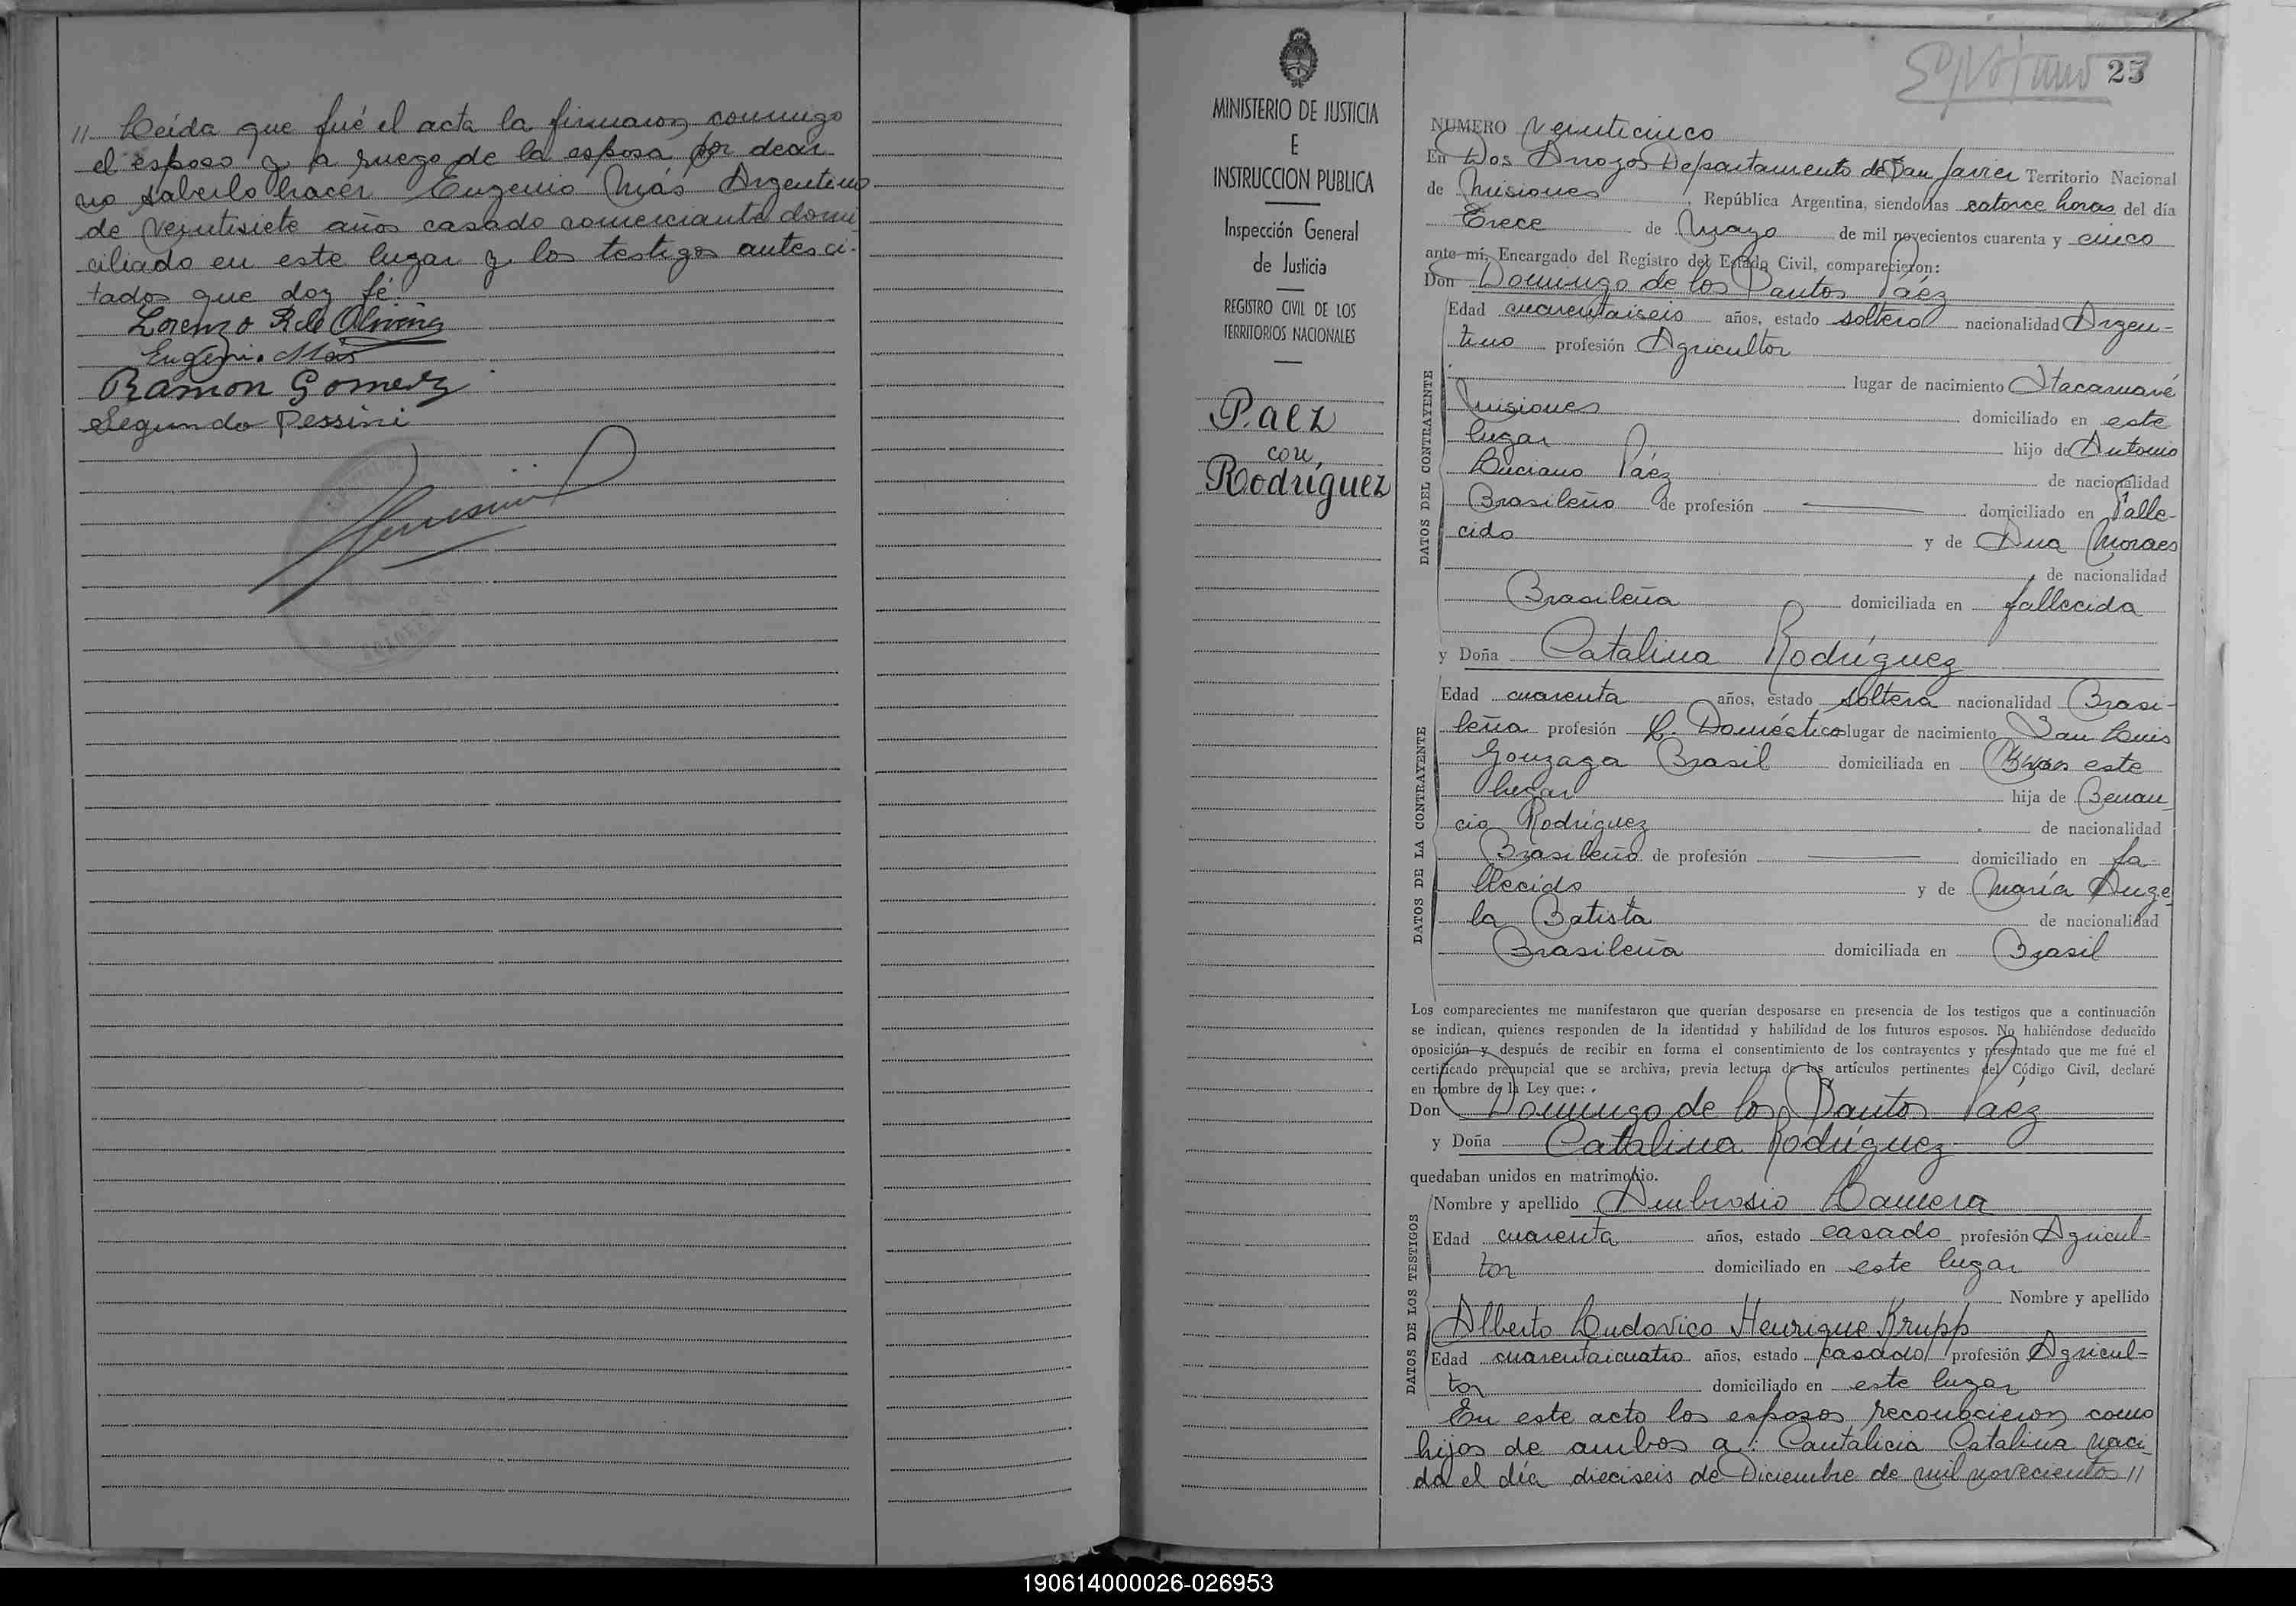 // Leída que fué el acta la firmaron conmigo
el esposo y a ruego de la esposa por decir
no saberlo hacer Eugenio Más Argentino
de veintisiete años casado comerciante domi
ciliado en este lugar y los testigos antes ci-
tados que doy fé.
Lorenzo R de Olivera
Eugenio Mas
Ramon Gomez
Segundo Pessini
25
MINISTERIO DE JUSTICIA
E
INSTRUCCION PUBLICA
Inspección General
de Justicia
REGISTRO CIVIL DE LOS
TERRITORIOS NACIONALES
Paez
con
Rodríguez
NUMERO Veinticinco
En Dos Arroyos Departamento de San Javier Territorio Nacional
de Misiones, República Argentina, siendo las catorce horas del día
Trece de Mayo de mil novecientos cuarenta y cinco
ante mí, Encargado del Registro del Estado Civil, comparecieron:
Don Domingo de los Santos Páez
DATOS DEL CONTRAYENTE
Edad cuarentaiseis años, estado soltero nacionalidad Argen-
tino profesión Agricultor
lugar de nacimiento Itacaruaré
Misiones domiciliado en este
lugar hijo de Antonio
Luciano Páez de nacionalidad
Brasileño de profesión domiciliado en Falle-
cido y de Ana Moraes
de nacionalidad
Brasileña domiciliada en fallecida
y Doña Catalina Rodríguez
DATOS DE LA CONTRAYENTE
Edad cuarenta años, estado soltera nacionalidad Brasi-
leña profesión L. Domésticos lugar de nacimiento San Luis
Gonzaga Brasil domiciliada en este
lugar hija de Benan
cio Rodríguez de nacionalidad
Brasileño de profesión domiciliado en fa-
llecido y de María Ange
la Batista de nacionalidad
Brasileña domiciliada en Brasil
Los comparecientes me manifestaron que querían desposarse en presencia de los testigos que a continuación
se indican, quienes responden de la identidad y habilidad de los futuros esposos. No habiéndose deducido
oposición y después de recibir en forma el consentimiento de los contrayentes y presentado que me fué el
certificado prenupcial que se archiva, previa lectura de los artículos pertinentes del Código Civil, declaré
en nombre de la Ley que:
Don Domingo de los Santos Páez
y Doña Catalina Rodríguez
quedaban unidos en matrimonio.
DATOS DE LOS TESTIGOS
Nombre y apellido Ambrosio
Edad cuarenta años, estado casado profesión Agricul-
tor domiciliado en este lugar
Nombre y apellido
Alberto Ludovico Henrique Krupp
Edad cuarentaicuatro años, estado casado profesión Agricul-
tor domiciliado en este lugar
En este acto los esposos reconocieron como
hijos de ambos a: Cantalicia Catalina naci-
da el día dieciseis de Diciembre de mil novecientos //
190614000026-026953